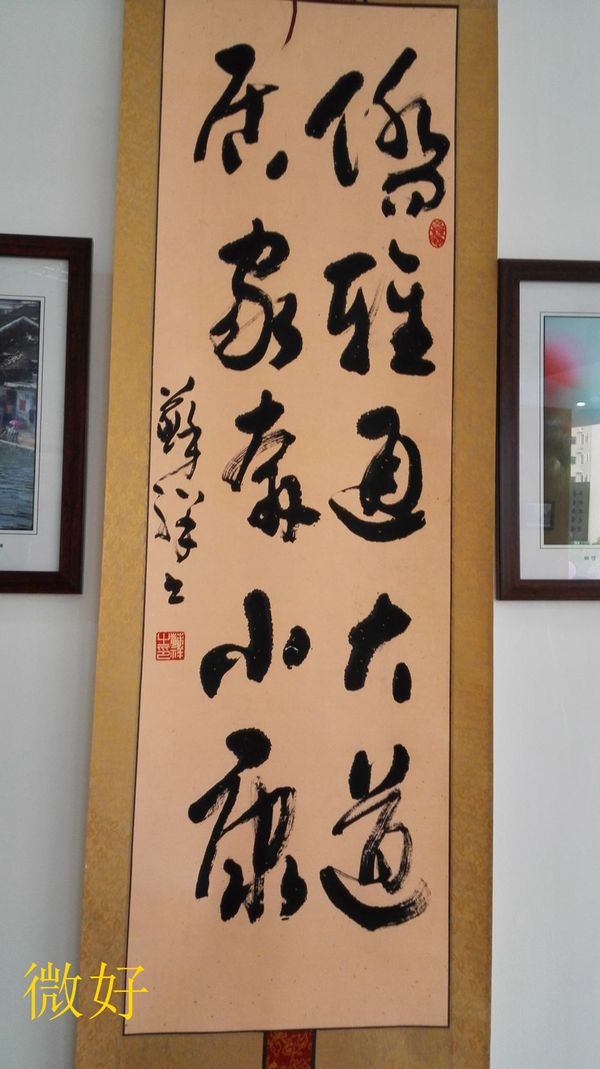 僑雅通大道
居家奔小康
蘇祥书
微好